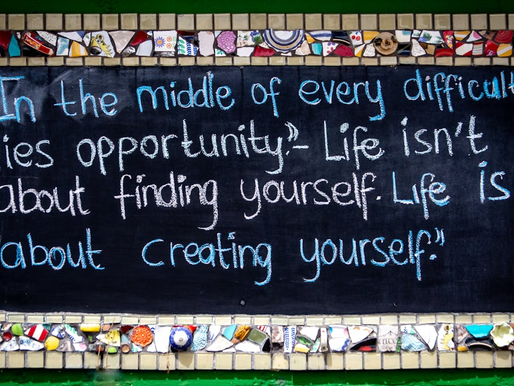 In the middle of every difficult
lies opportunity."- Life isn't
about finding yourself. Life is
about creating yourself."